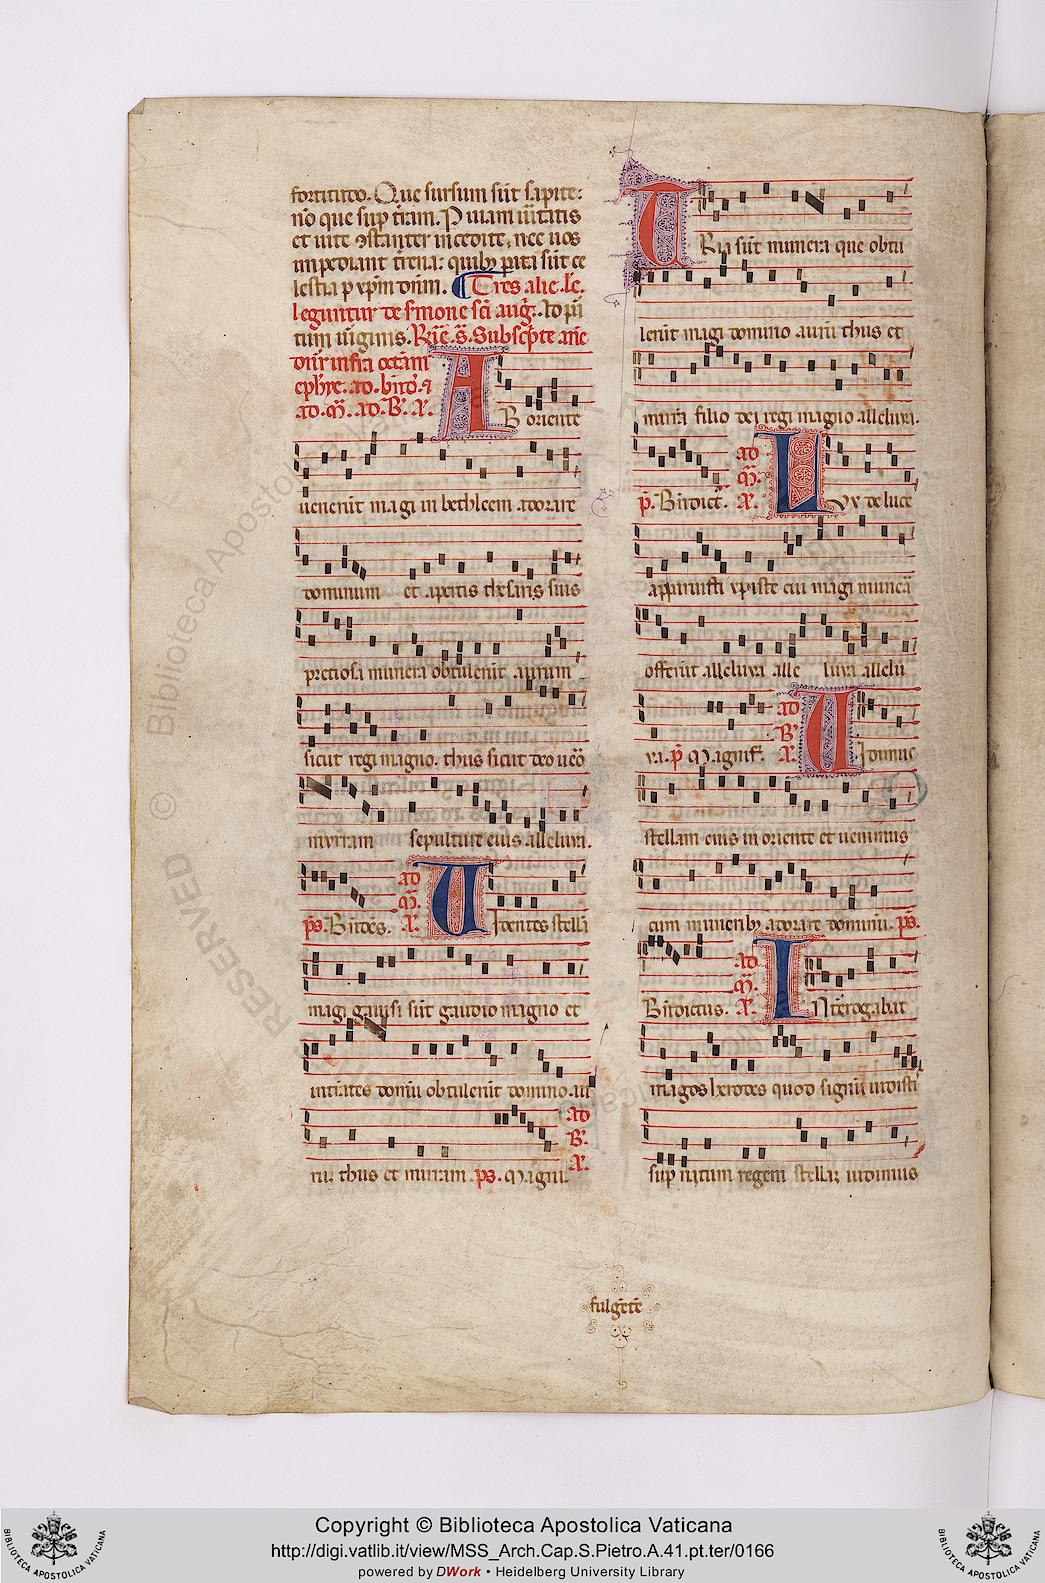 fortitudo. Que sursum sūt sapite:
nō que sup̄ tr̄am. P uiam ūitatis
et uite ꝯstanter incedite, nec uos
impediant tr̄ena: quibꝫ pata sūt ce
lestia p xp̄m dn̄m. Tres alie. le.
leguntur de sr̄mone sc̄i auḡ. Ad p̄
tum ūginis. Subscp̄te an̄e
dn̄r infra octām
ephye. ad. bn̄d.
ad. M̄. ad. B. A.
AB oriente
uenerūt magi in bethleem adorare
dominum et apertis thesaris suis
pretiosa munera obtulerūt aurum
sicut regi magno. thus sicut deo uō
mirram sepulture eius. alleluia.
ad
M̄.
ps. Bn̄dcs. A. Uidentes stellā
magi gauisi sūt gaudio magno et
intrātes domū obtulerūt domino au
ad
B.
A.
rū: thus et mirram. ps. Magni.
TRia sūt munera que obtu
lerūt magi domino aurū thus et
mirrā filio dei regi magno alleluia.
ad
M̄.
p̄. Bn̄dict̄. A. LVx de luce
apparuisti xp̄iste cui magi munerā
offerūt alleluya alle luya allelu
ad
B.
ya. p̄ Magnif. A. Uidimus
stellam eius in oriente et uenimus
cum muneribꝫ adorare dominū. ps.
ad
M̄.
Bn̄dictus. A. INterogabat
magos herodes quod signū uidisti
sup̄ natum regem stellaꝫ uidimus
fulgētē
RESERVED © Biblioteca Apostolica Vaticana
Copyright © Biblioteca Apostolica Vaticana
http://digi.vatlib.it/view/MSS_Arch.Cap.S.Pietro.A.41.pt.ter/0166
powered by DWork • Heidelberg University Library
BIBLIOTECA APOSTOLICA VATICANA
BIBLIOTECA APOSTOLICA VATICANA